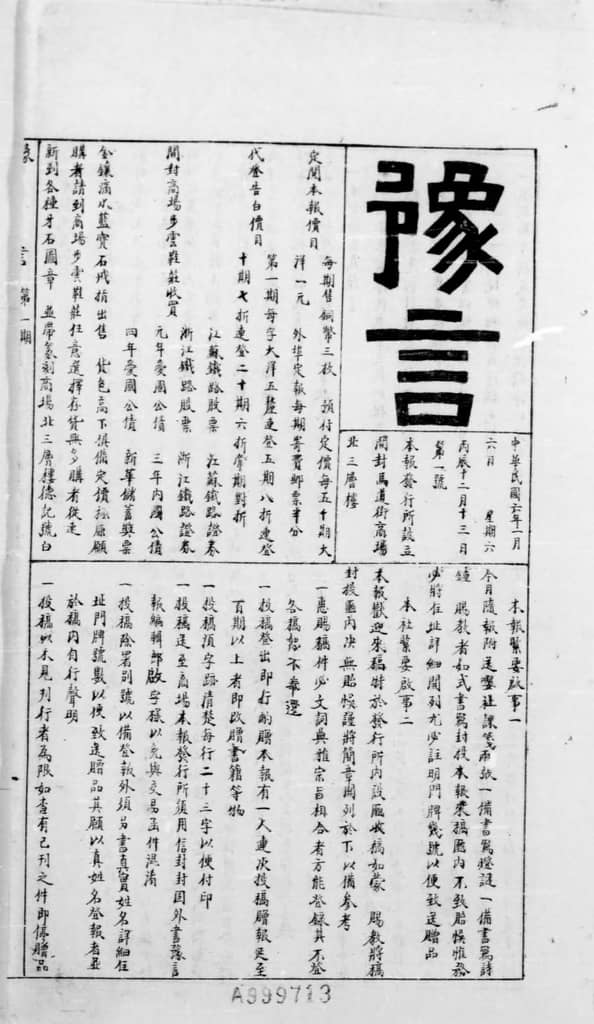 豫言
中華民國六年一月
六日　星期六
丙辰十二月十三日
第一號
本報發行所設立
開封馬道街商場
北三層樓
定閱本報價目
每期售銅幣三枚　預付定價每五十期大
洋一元　外埠定報每期寄費郵票半分
代登告白價目
第一期每字大洋五釐連登五期八折連登
十期七折連登二十期六折掌期對折
開封商場步雲鞋莊收買
江蘇鐵路股票　江蘇鐵路證券
浙江鐵路股票　浙江鐵路證券
元年愛國公債　三年內國公債
四年愛國公債　新華儲蓄獎票
金鑲滴水藍寶石戒指出售　貨色高下俱備定價極廉願
購者請到商場步雲鞋莊任意選擇存貨無多購者從速
新到各種牙石圖章　並帶篆刻商場北三層樓德記號白
豫　言　第一期
本報緊要啟事一
今日隨報附送壐社課箋兩紙一備書寫燈謎一備書寫詩
鐘　賜教者如式書寫封投本報來稿匭內不致貽悞惟務
必將住址詳細開列尤必註明門牌幾號以便致送贈品
本社緊要啟事二
本報歡迎來稿特於發行所內設匭收稿如蒙　賜教將稿
封投匭內決無貽悞謹將簡章開列於下以備參考
一惠賜稿件必文詞典雅宗旨相合者方能登錄其不登
各稿恕不奉還
一投稿登出即行酌贈本報有一人連次投稿贈報足至
百期以上者即改贈書籍等物
一投稿須字跡清楚每行二十三字以便付印
一投稿送至商場本報發行所須用信封封固外書豫言
報編輯部啟字樣以免與交易函件混淆
一投稿除署別號以備登報外須另書真實姓名詳細住
址門牌號數以便致送贈品其願以真姓名登報者並
於稿內自行聲明
一投稿以未見刊行者為限如查有已刊之件即停贈品
A999713